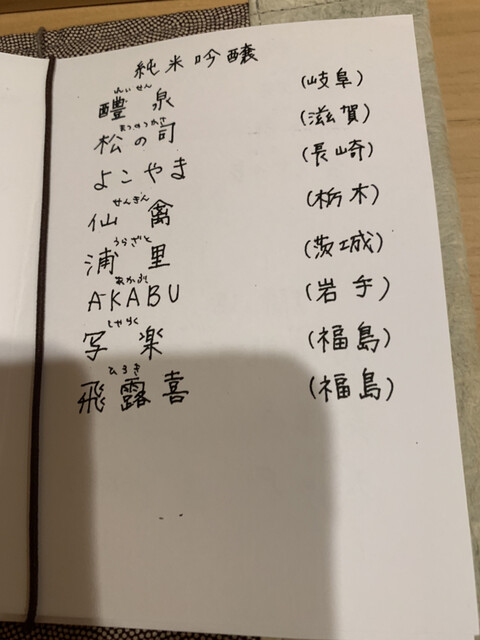 純米吟醸
れいせん
醴泉 (岐阜)
まつのつかさ
松の司 (滋賀)
よこやま (長崎)
せんきん
仙禽 (栃木)
うらざと
浦里 (茨城)
あかぶ
AKABU (岩手)
しゃらく
写楽 (福島)
ひろき
飛露喜 (福島)